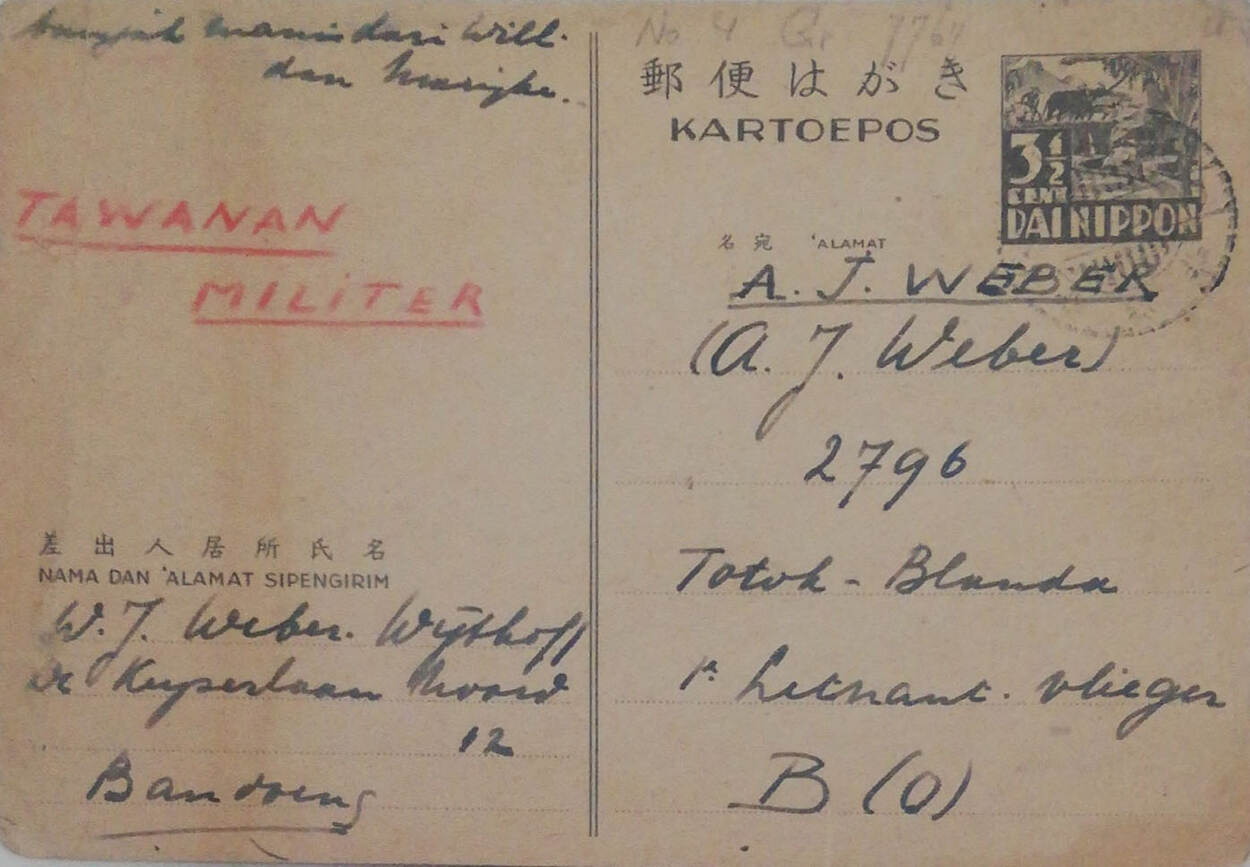 banjak manis dari Will.
dan Marijke.
TAWANAN
MILITER
差出人居所氏名
NAMA DAN 'ALAMAT SIPENGIRIM
W. J. Weber. Wijthoff
Dr Kuyperlaan Noord
12
Bandoeng
No 4 Gr 7764
郵便はがき
KARTOEPOS
3 1/2
CENT
DAI NIPPON
名宛 'ALAMAT
A. J. WEBER
(A. J. Weber)
2796
Totok - Blanda
1e Letnant. vlieger
B (O)